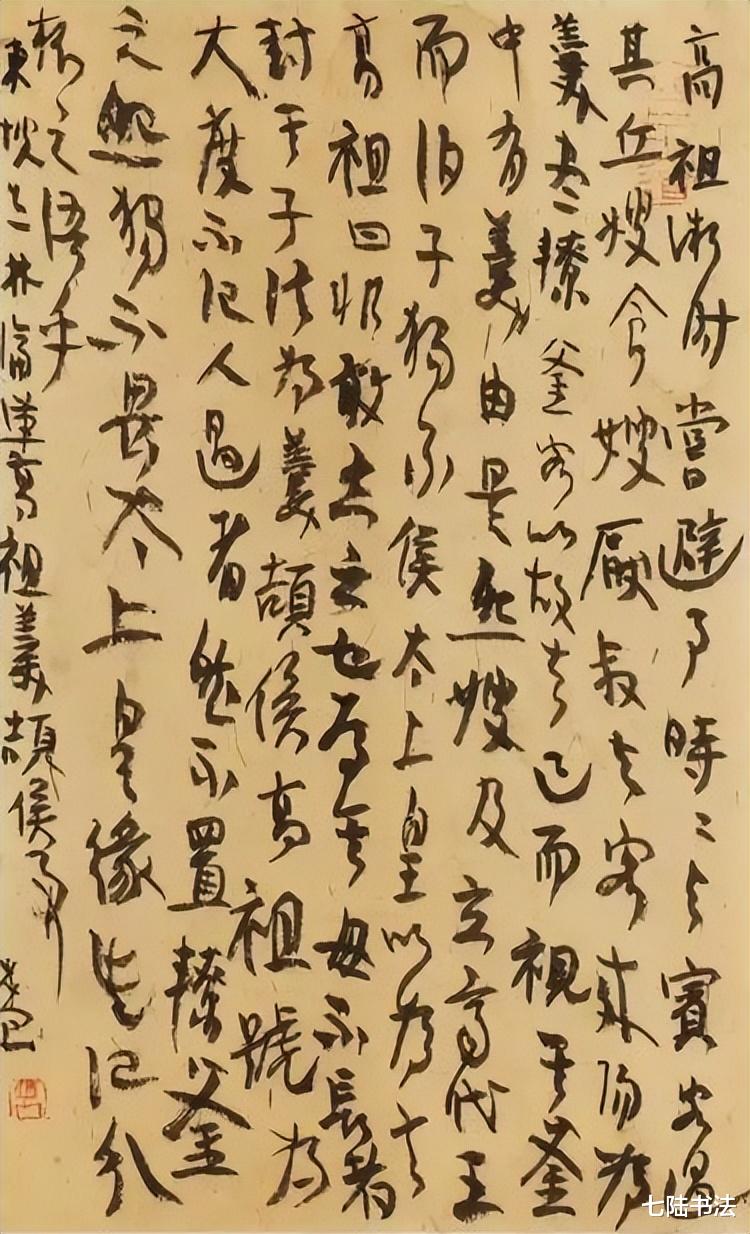 高祖微時嘗避事時時與賓客過
其丘嫂食嫂厭叔與客來陽為
羹盡轑釜客以故去已而視其釜
中有羹由是怨嫂及立齊代王
而伯子獨不侯太上皇以為言
高祖曰非敢忘之也為其母不長者
封其子信為羹頡侯高祖號為
大度不記人過者然不置轑釜
之怨獨不畏太上皇緣此記分
杯之語乎
東坡志林論漢高祖羹頡侯事
七陆书法